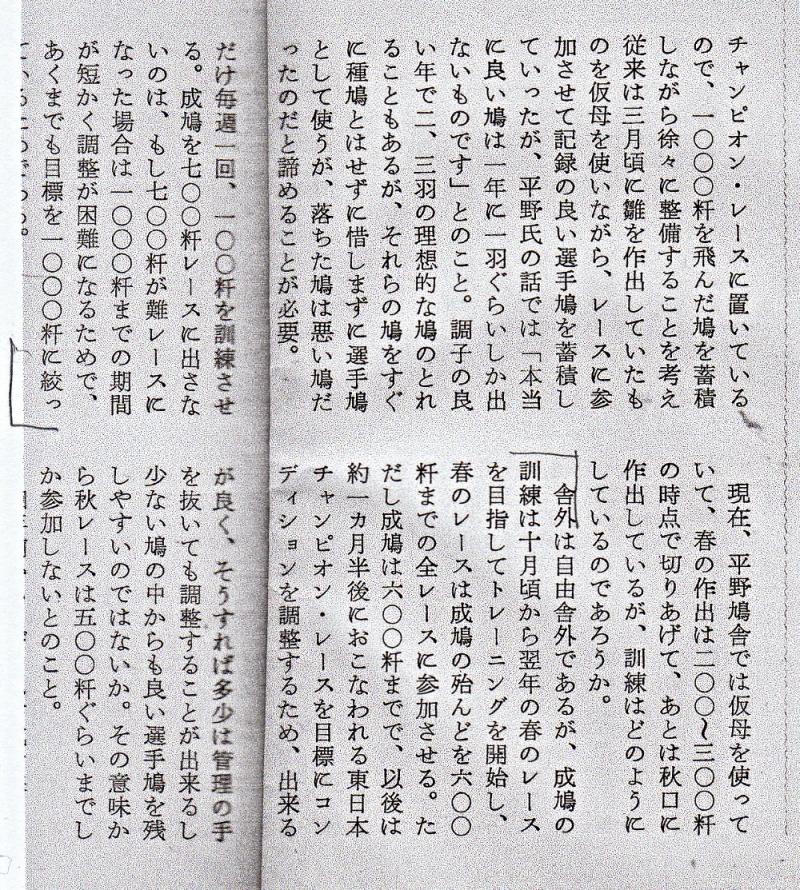 チャンピオン・レースに置いている
ので、一〇〇〇粁を飛んだ鳩を蓄積
しながら徐々に整備することを考え
従来は三月頃に雛を作出していたも
のを仮母を使いながら、レースに参
加させて記録の良い選手鳩を蓄積し
ていったが、平野氏の話では「本当
に良い鳩は一年に一羽ぐらいしか出
ないものです」とのこと。調子の良
い年で二、三羽の理想的な鳩のとれ
ることもあるが、それらの鳩をすぐ
に種鳩とはせずに惜しまずに選手鳩
として使うが、落ちた鳩は悪い鳩だ
ったのだと諦めることが必要。
現在、平野鳩舎では仮母を使って
いて、春の作出は二〇〇〜三〇〇粁
の時点で切りあげて、あとは秋口に
作出しているが、訓練はどのように
しているのであろうか。
舎外は自由舎外であるが、成鳩の
訓練は十月頃から翌年の春のレース
を目指してトレーニングを開始し、
春のレースは成鳩の殆んどを六〇〇
粁までの全レースに参加させる。た
だし成鳩は六〇〇粁までで、以後は
約一カ月半後におこなわれる東日本
チャンピオン・レースを目標にコン
ディションを調整するため、出来る
だけ毎週一回、一〇〇粁を訓練させ
る。成鳩を七〇〇粁レースに出さな
いのは、もし七〇〇粁が難レースに
なった場合は一〇〇〇粁までの期間
が短かく調整が困難になるためで、
あくまでも目標を一〇〇〇粁に絞っ
が良く、そうすれば多少は管理の手
を抜いても調整することが出来るし
少ない鳩の中からも良い選手鳩を残
しやすいのではないか。その意味か
ら秋レースは五〇〇粁ぐらいまでし
か参加しないとのこと。